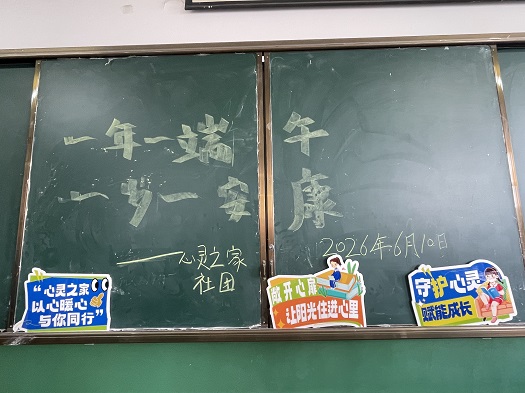 一年一端午
一岁一安康
——心灵之家
社团
2026年6月10日
“心灵之家
以心暖心
与你同行”
敞开心扉
让阳光住进心里
守护心灵
赋能成长